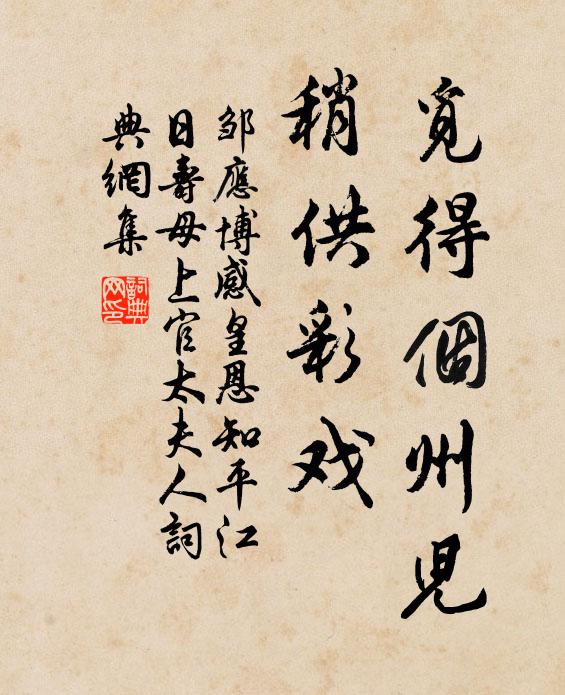 覓得個州兒
稍供彩戏
邹應博感皇恩知平江
日壽母上官太夫人詞
典網集
詞典
网印